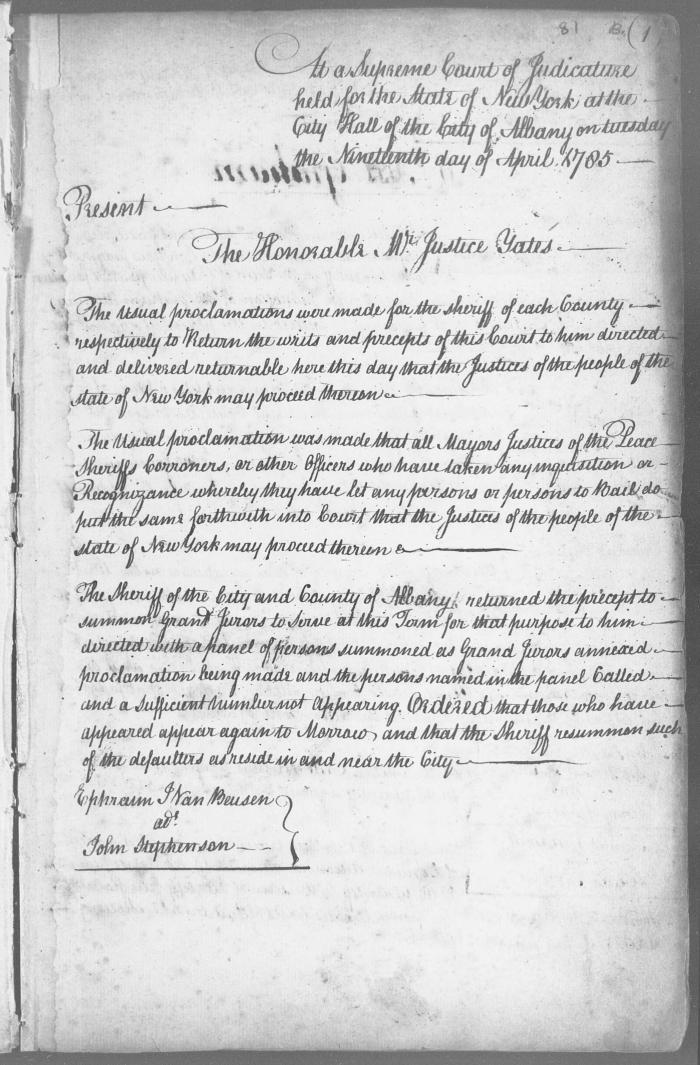 81 B. (1
At a Supreme Court of Judicature
held for the State of New York at the
City Hall of the City of Albany on tuesday
the Nineteenth day of April 1785
Present
The Honorable Mr. Justice Yates
The Usual proclamations were made for the sheriff of each County
respectively to Return the writs and precepts of this Court to him directed
and delivered returnable here this day that the Justices of the people of the
state of New York may proceed thereon
The Usual proclamation was made that all Mayors Justices of the Peace
Sheriffs Corroners, or other Officers who have taken any inquisition or
Recognizance whereby they have let any persons or persons to Bail do
put the same forthwith into Court that the Justices of the people of the
state of New York may proceed thereon
The Sheriff of the City and County of Albany returned the precept to
summon Grand Jurors to Serve at this Term for that purpose to him
directed with a panel of persons summoned as Grand Jurors annexed
proclamation being made and the persons named in the panel Called
and a Sufficient Number not Appearing. Ordered that those who have
appeared appear again to Morrow, and that the Sheriff resummon such
of the defaulters as reside in and near the City
Ephraim J Van Beusen
ads.
John Stephenson